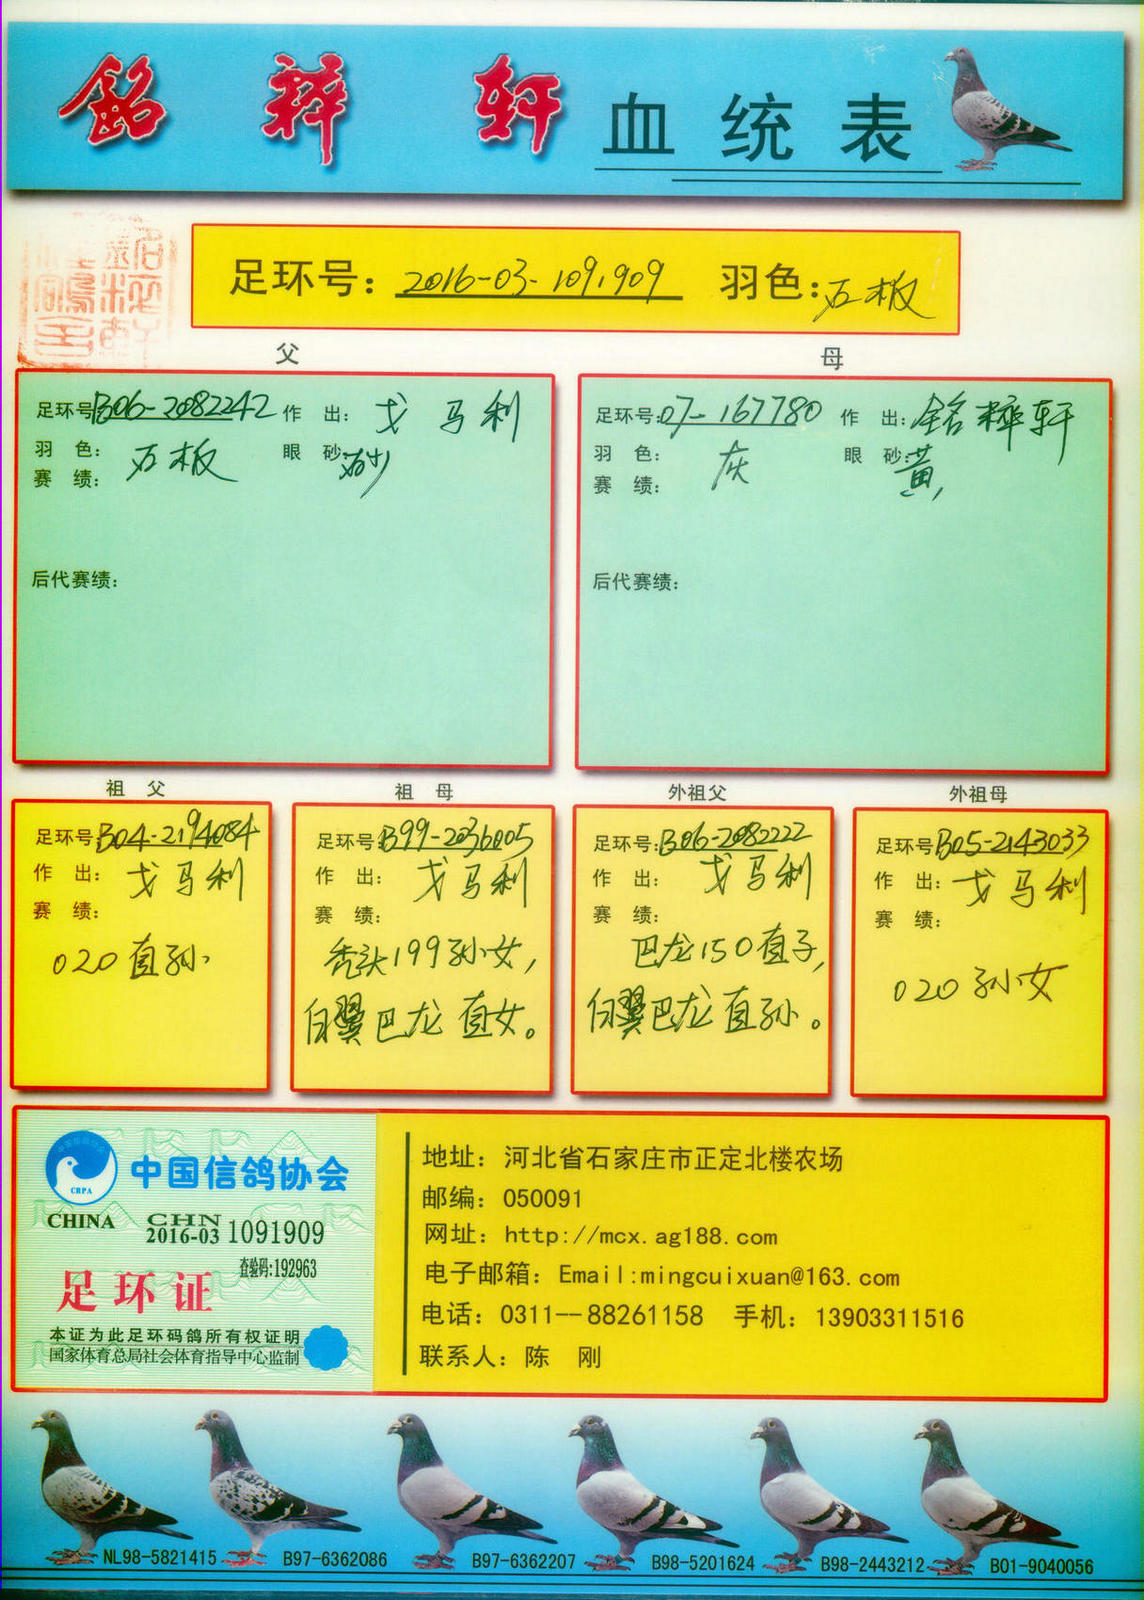 銘粹轩 血统表
足环号：2016-03-1091909 羽色：石板
父 母
足环号：B06-2082242 作 出：戈马利
羽 色：石板 眼 砂：砂
赛 绩：
后代赛绩：
足环号：07-167780 作 出：铭粹轩
羽 色：灰 眼 砂：黄
赛 绩：
后代赛绩：
祖 父
足环号：B04-2194084
作 出：戈马利
赛 绩：
020直孙.
祖 母
足环号：B99-2036005
作 出：戈马利
赛 绩：
秃头199孙女，
白翼巴龙直女。
外祖父
足环号：B06-2082222
作 出：戈马利
赛 绩：
巴龙150直子，
白翼巴龙直孙。
外祖母
足环号：B05-2143033
作 出：戈马利
赛 绩：
020孙女
CRPA
中国信鸽协会
CHINA CHN
2016-03 1091909
查验码:192963
足环证
本证为此足环码鸽所有权证明
国家体育总局社会体育指导中心监制
地址：河北省石家庄市正定北楼农场
邮编：050091
网址：http://mcx.ag188.com
电子邮箱：Email:mingcuixuan@163.com
电话：0311--88261158 手机：13903311516
联系人：陈 刚
NL98-5821415 B97-6362086 B97-6362207 B98-5201624 B98-2443212 B01-9040056